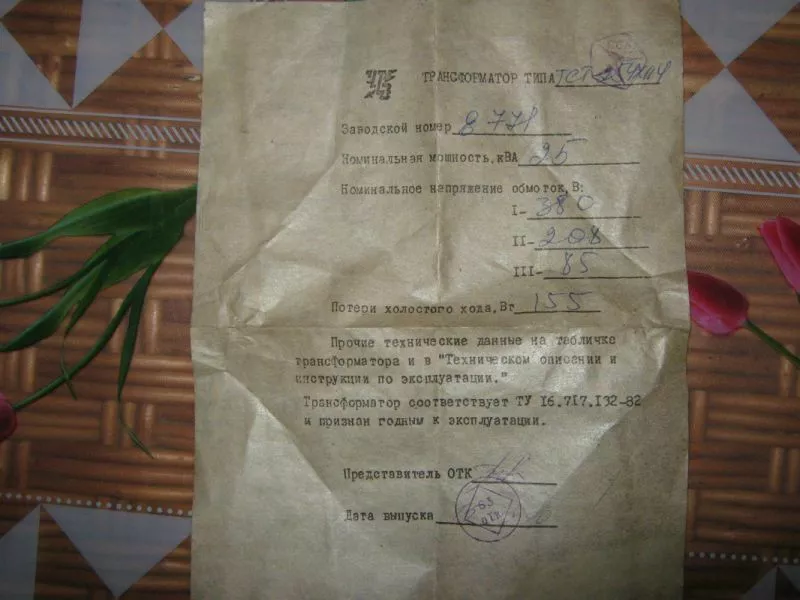 ТРАНСФОРМАТОР ТИПА
Заводской номер 8771
Номинальная мощность, кВА 25
Номинальное напряжение обмоток, В:
I- 380
II- 208
III- 85
Потери холостого хода, Вт 155
Прочие технические данные на табличке
трансформатора и в "Техническом описании и
инструкции по эксплуатации."
Трансформатор соответствует ТУ 16.717.132-82
и признан годным к эксплуатации.
Представитель ОТК
Дата выпуска
63
ОТК